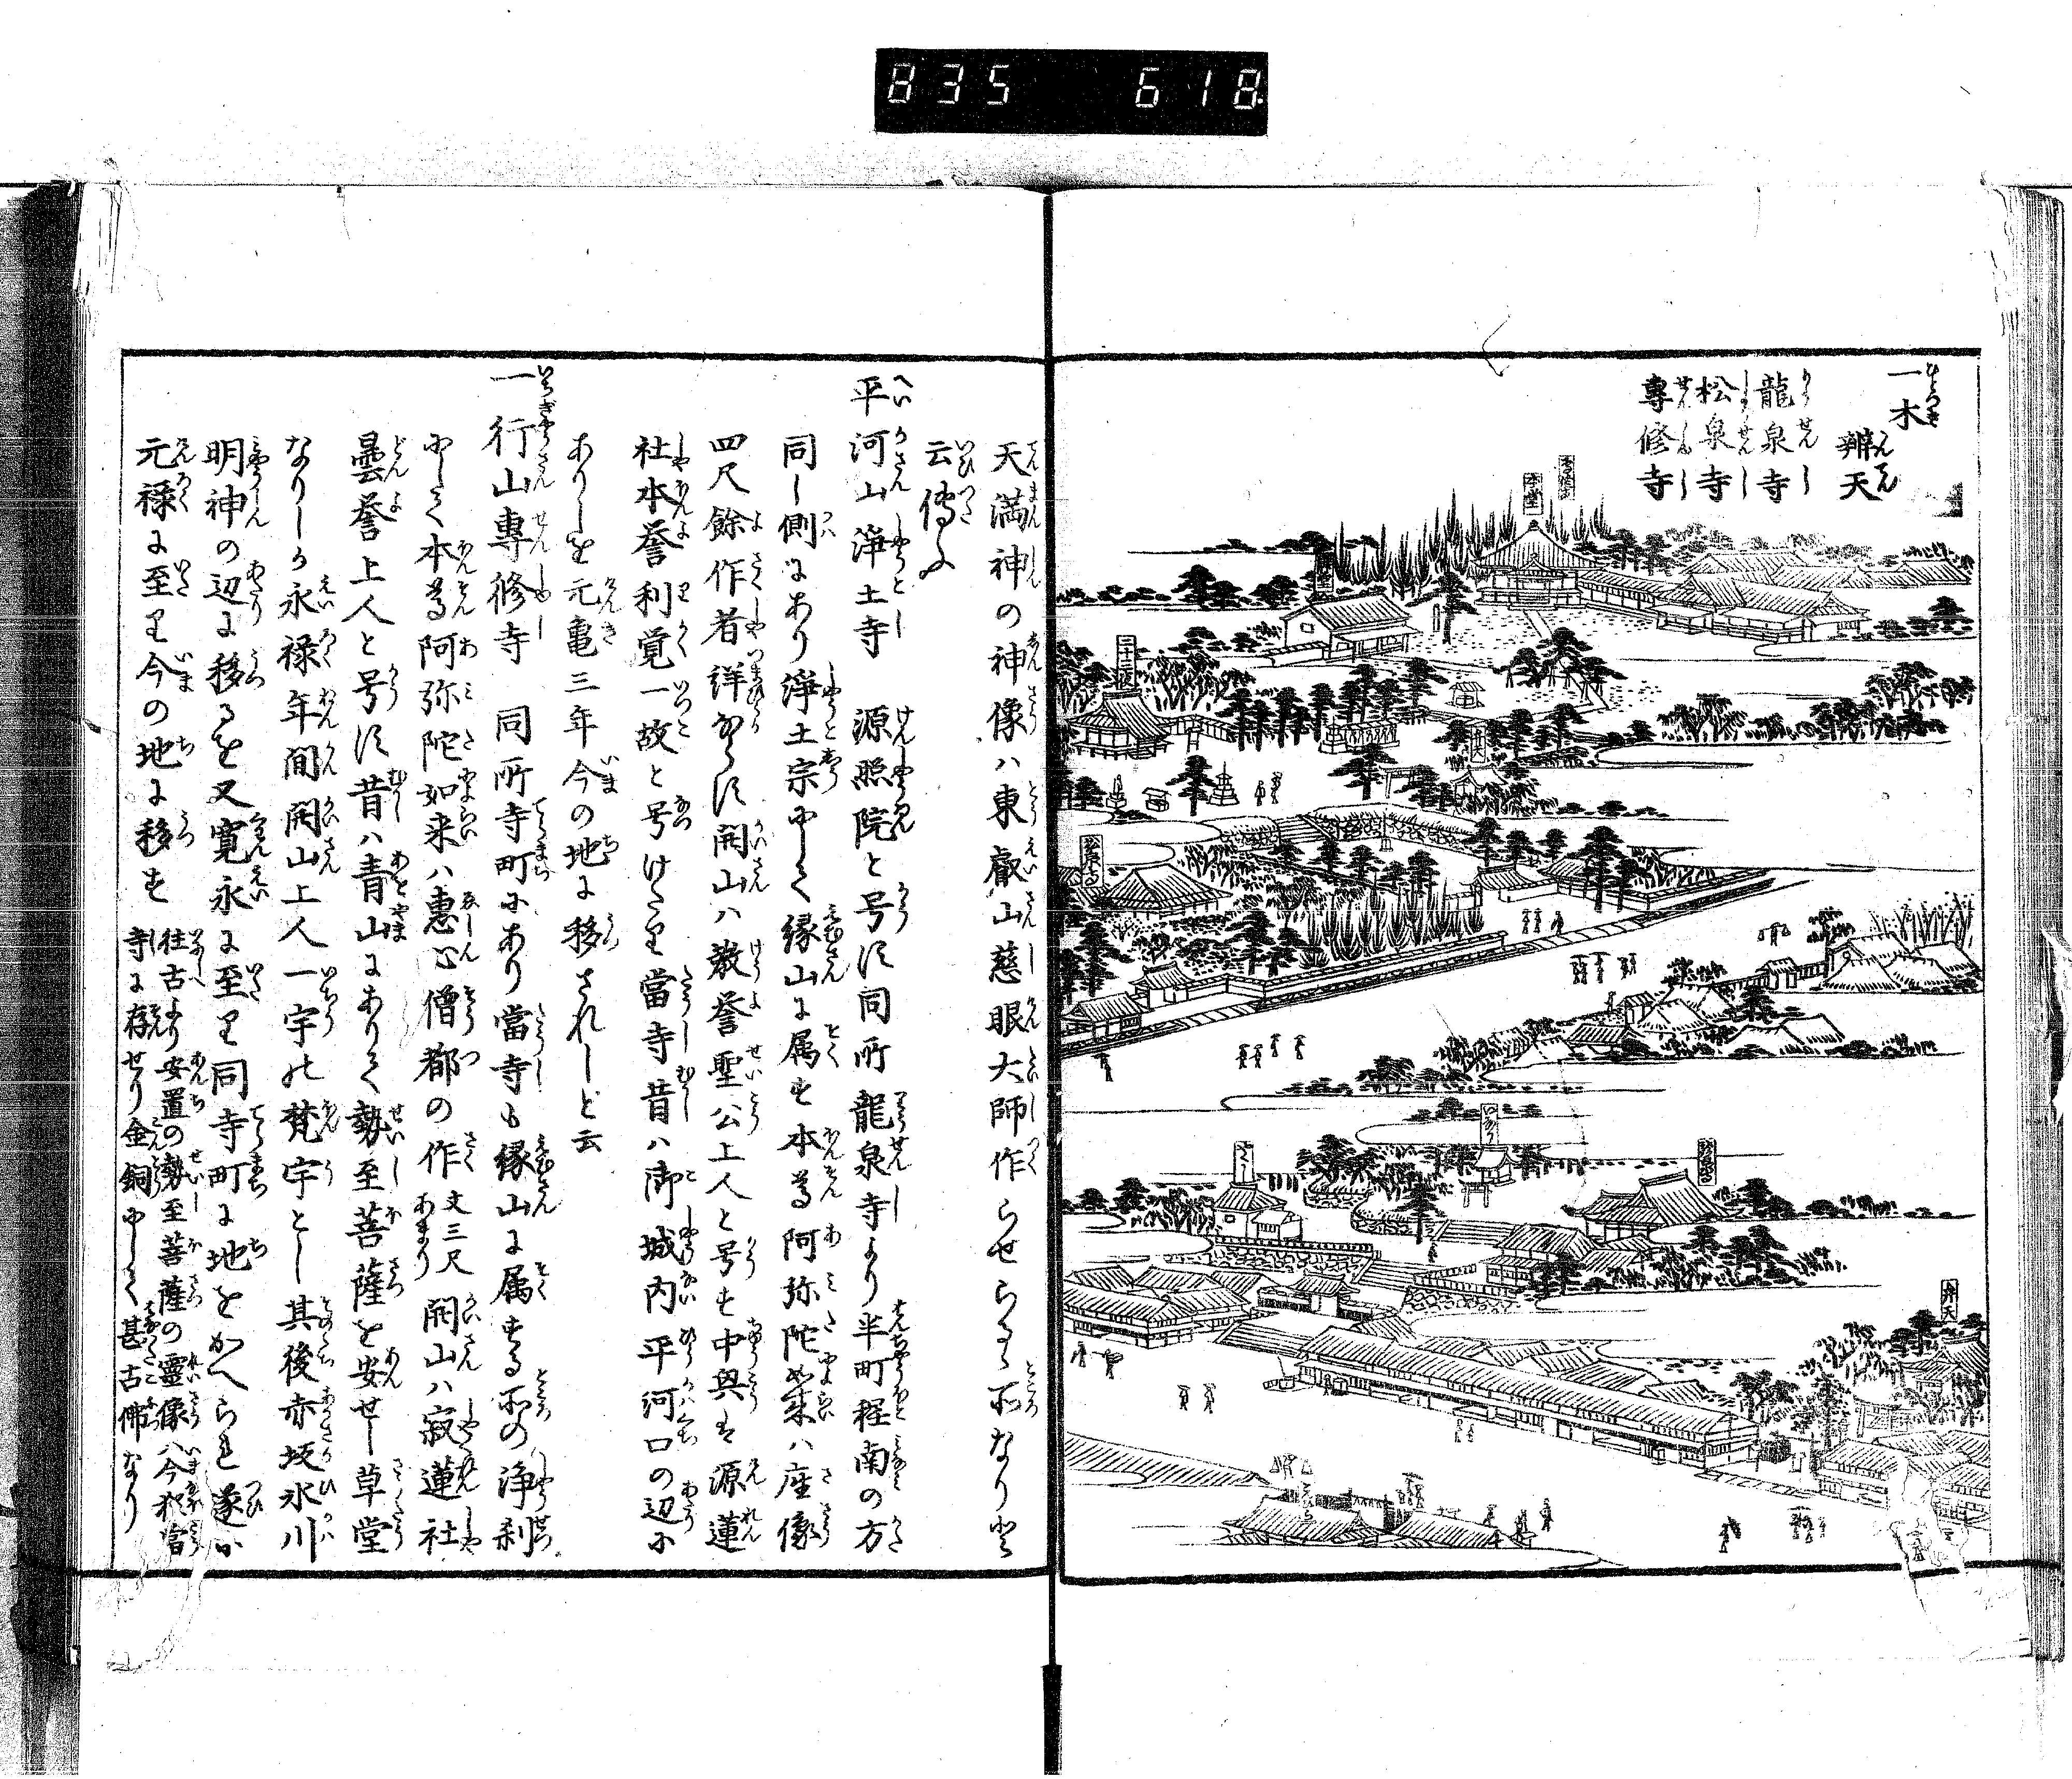 835 618
一木
辨天
龍泉寺
松泉寺
專修寺
本堂
二十三夜
弁天
いなり
弁天
天満神の神像ハ東叡山慈眼大師作らせらるゝ所なりと
云傳ふ
平河山淨土寺 源照院と号す同所龍泉寺より半町程南の方
同し側にあり淨土宗にして縁山に属す本尊阿弥陀如来ハ座像
四尺餘作者詳ならす開山ハ教誉聖公上人と号す中興を源蓮
社本誉利覚一故と号けたり當寺昔ハ御城内平河口の辺に
ありしを元亀三年今の地に移されしと云
一行山專修寺 同所寺町にあり當寺も縁山に属する所の淨刹
にして本尊阿弥陀如来ハ恵心僧都の作丈三尺あまり開山ハ寂蓮社
曇誉上人と号す昔ハ青山にありて勢至菩薩を安せし草堂
なりしか永禄年間開山上人一宇の梵宇とし其後赤坂氷川
明神の辺に移るを又寛永に至り同寺町に地をかへられ遂に
元禄に至り今の地に移す
往古より安置の勢至菩薩の靈像ハ今猶當
寺に存せり金銅にして甚古佛なり